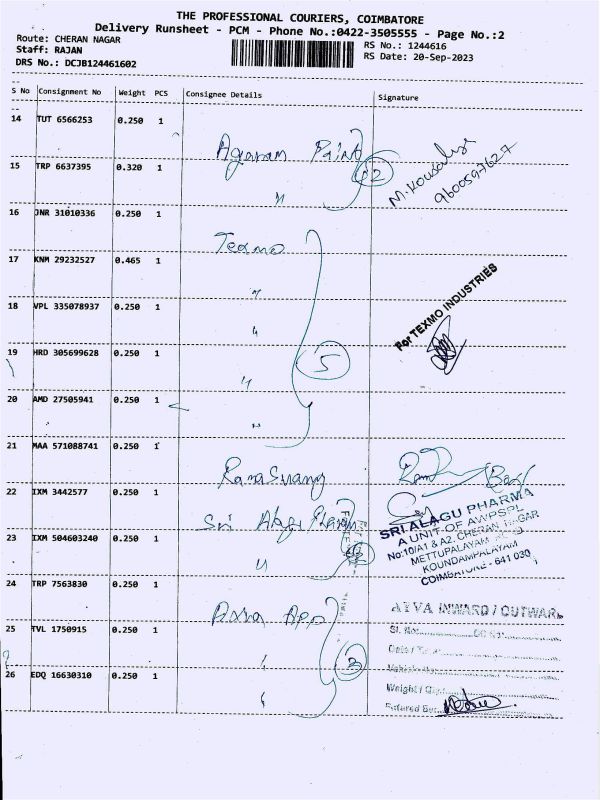 THE PROFESSIONAL COURIERS, COIMBATORE
Delivery Runsheet - PCM - Phone No.:0422-3505555 - Page No.:2
Route: CHERAN NAGAR
Staff: RAJAN
DRS No.: DCJB124461602
RS No.: 1244616
RS Date: 20-Sep-2023
S No Consignment No Weight PCS Consignee Details Signature
14 TUT 6566253 0.250 1 Agaram Paint
15 TRP 6637395 0.320 1 " 2
M. Kousalya
9600597627
16 JNR 31010336 0.250 1 Texmo
17 KNM 29232527 0.465 1 "
18 VPL 335078937 0.250 1 "
For TEXMO INDUSTRIES
19 HRD 305699628 0.250 1 " 5
20 AMD 27505941 0.250 1 "
21 MAA 571088741 0.250 1
22 IXM 3442577 0.250 1 Sri
23 IXM 504603240 0.250 1 "
SRI ALAGU PHARMA
A UNIT OF AWPSPL
No:10/A1 & A2, CHERAN NAGAR
METTUPALAYAM
KOUNDAMPALAYAM
COIMBATORE - 641 030
24 TRP 7563830 0.250 1
25 TVL 1750915 0.250 1 " 3
26 EDQ 16630310 0.250 1 "
INWARD / OUTWARD
Sl. No:
Date / Time
Weight / Qty
Entered By: